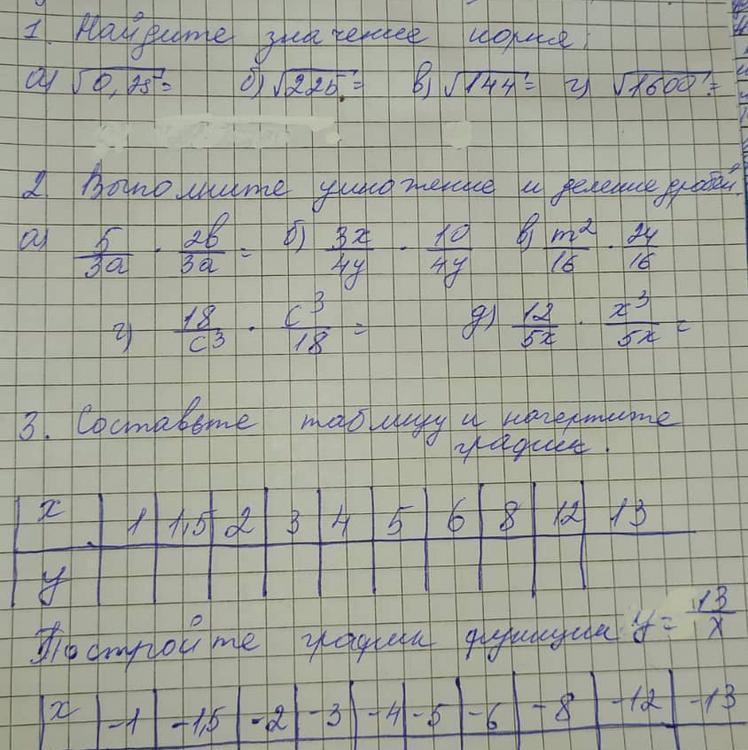 1. Найдите значение корня:
а) √0,25 = б) √225 = в) √144 = г) √1600 =
2. Выполните умножение и деление дробей.
а) 5/3a · 2b/3a = б) 3x/4y · 10/4y в) m²/16 · 24/16
г) 18/c³ · c³/18 = д) 12/5x · x³/5x =
3. Составьте таблицу и начертите
график.
x 1 1,5 2 3 4 5 6 8 12 13
y
Постройте график функции y = 13/x
x -1 -1,5 -2 -3 -4 -5 -6 -8 -12 -13